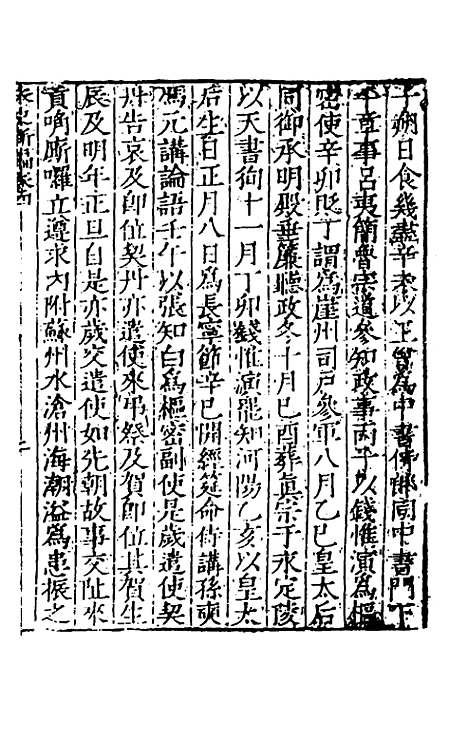 子朔日食幾盡辛未以王曾爲中書侍郎同中書門下
平章事呂夷簡魯宗道參知政事丙子以錢惟演爲樞
密使辛卯貶丁謂爲崖州司戶參軍八月乙巳皇太后
同御承明殿垂簾聽政冬十月己酉葬眞宗于永定陵
以天書狥十一月丁卯錢惟演罷知河陽乙亥以皇太
后生日正月八日爲長寧節辛巳開經筵命侍講孫奭
馮元講論語壬午以張知白爲樞密副使是歲遣使契
丹告哀及即位契丹亦遣使來弔祭及賀即位其賀生
辰及明年正旦自是亦歲交遣使如先朝故事交阯來
貢唃廝囉立遵求內附蘇州水滄州海潮溢爲患振之
宋史新編卷四